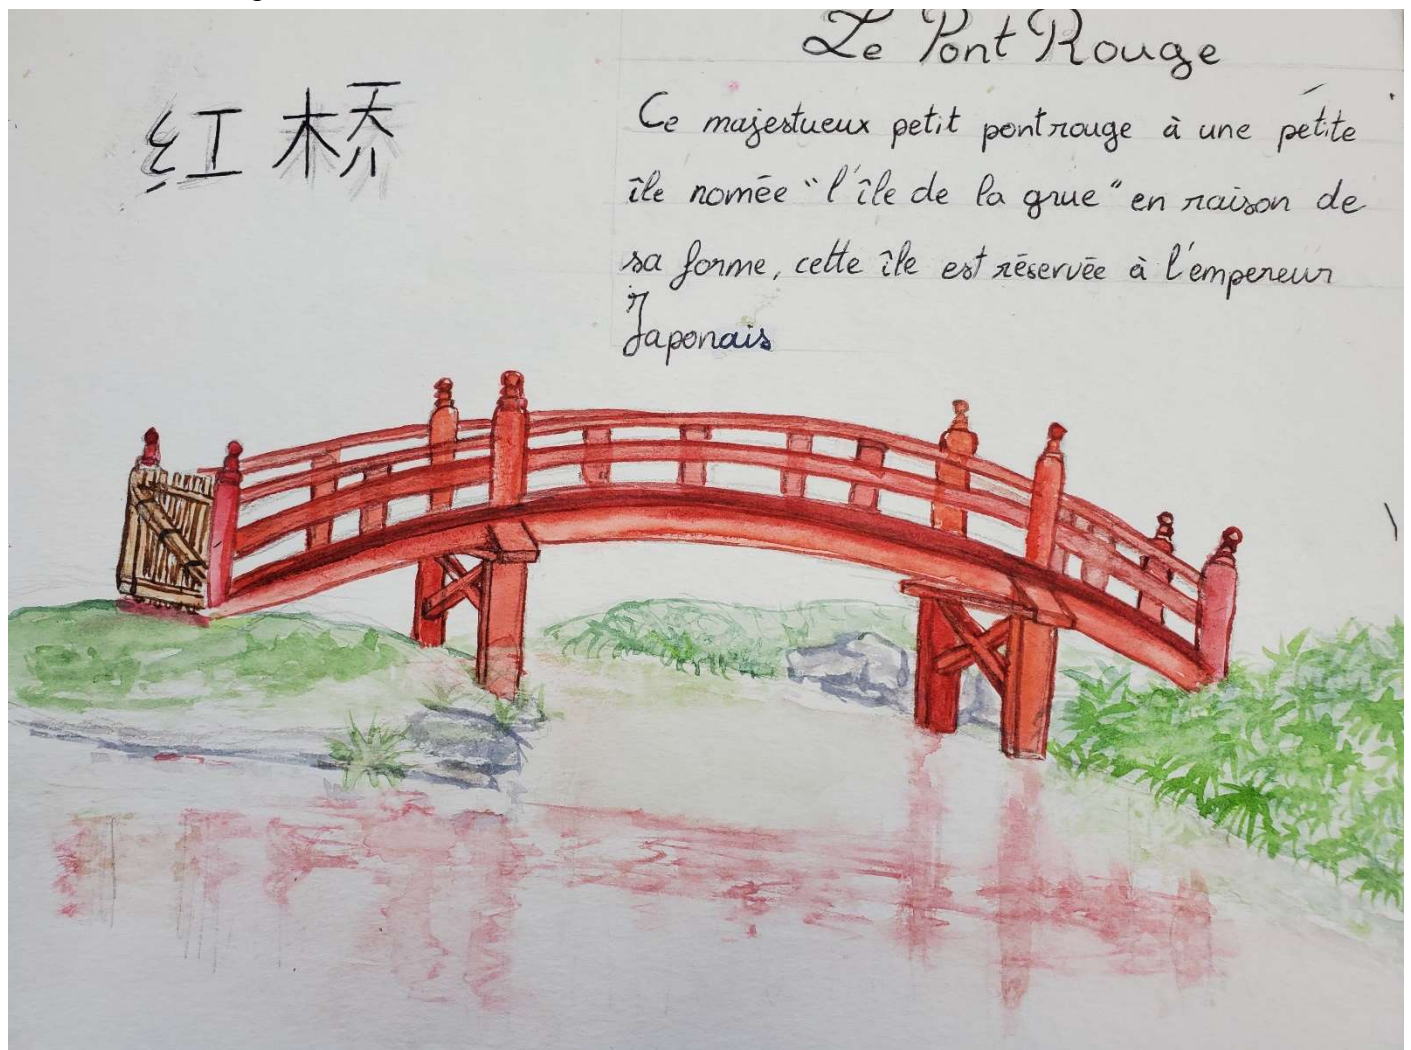 红桥
Le Pont Rouge
Ce majestueux petit pont rouge à une petite
île nomée "l'île de la grue" en raison de
sa forme, cette île est réservée à l'empereur
Japonais